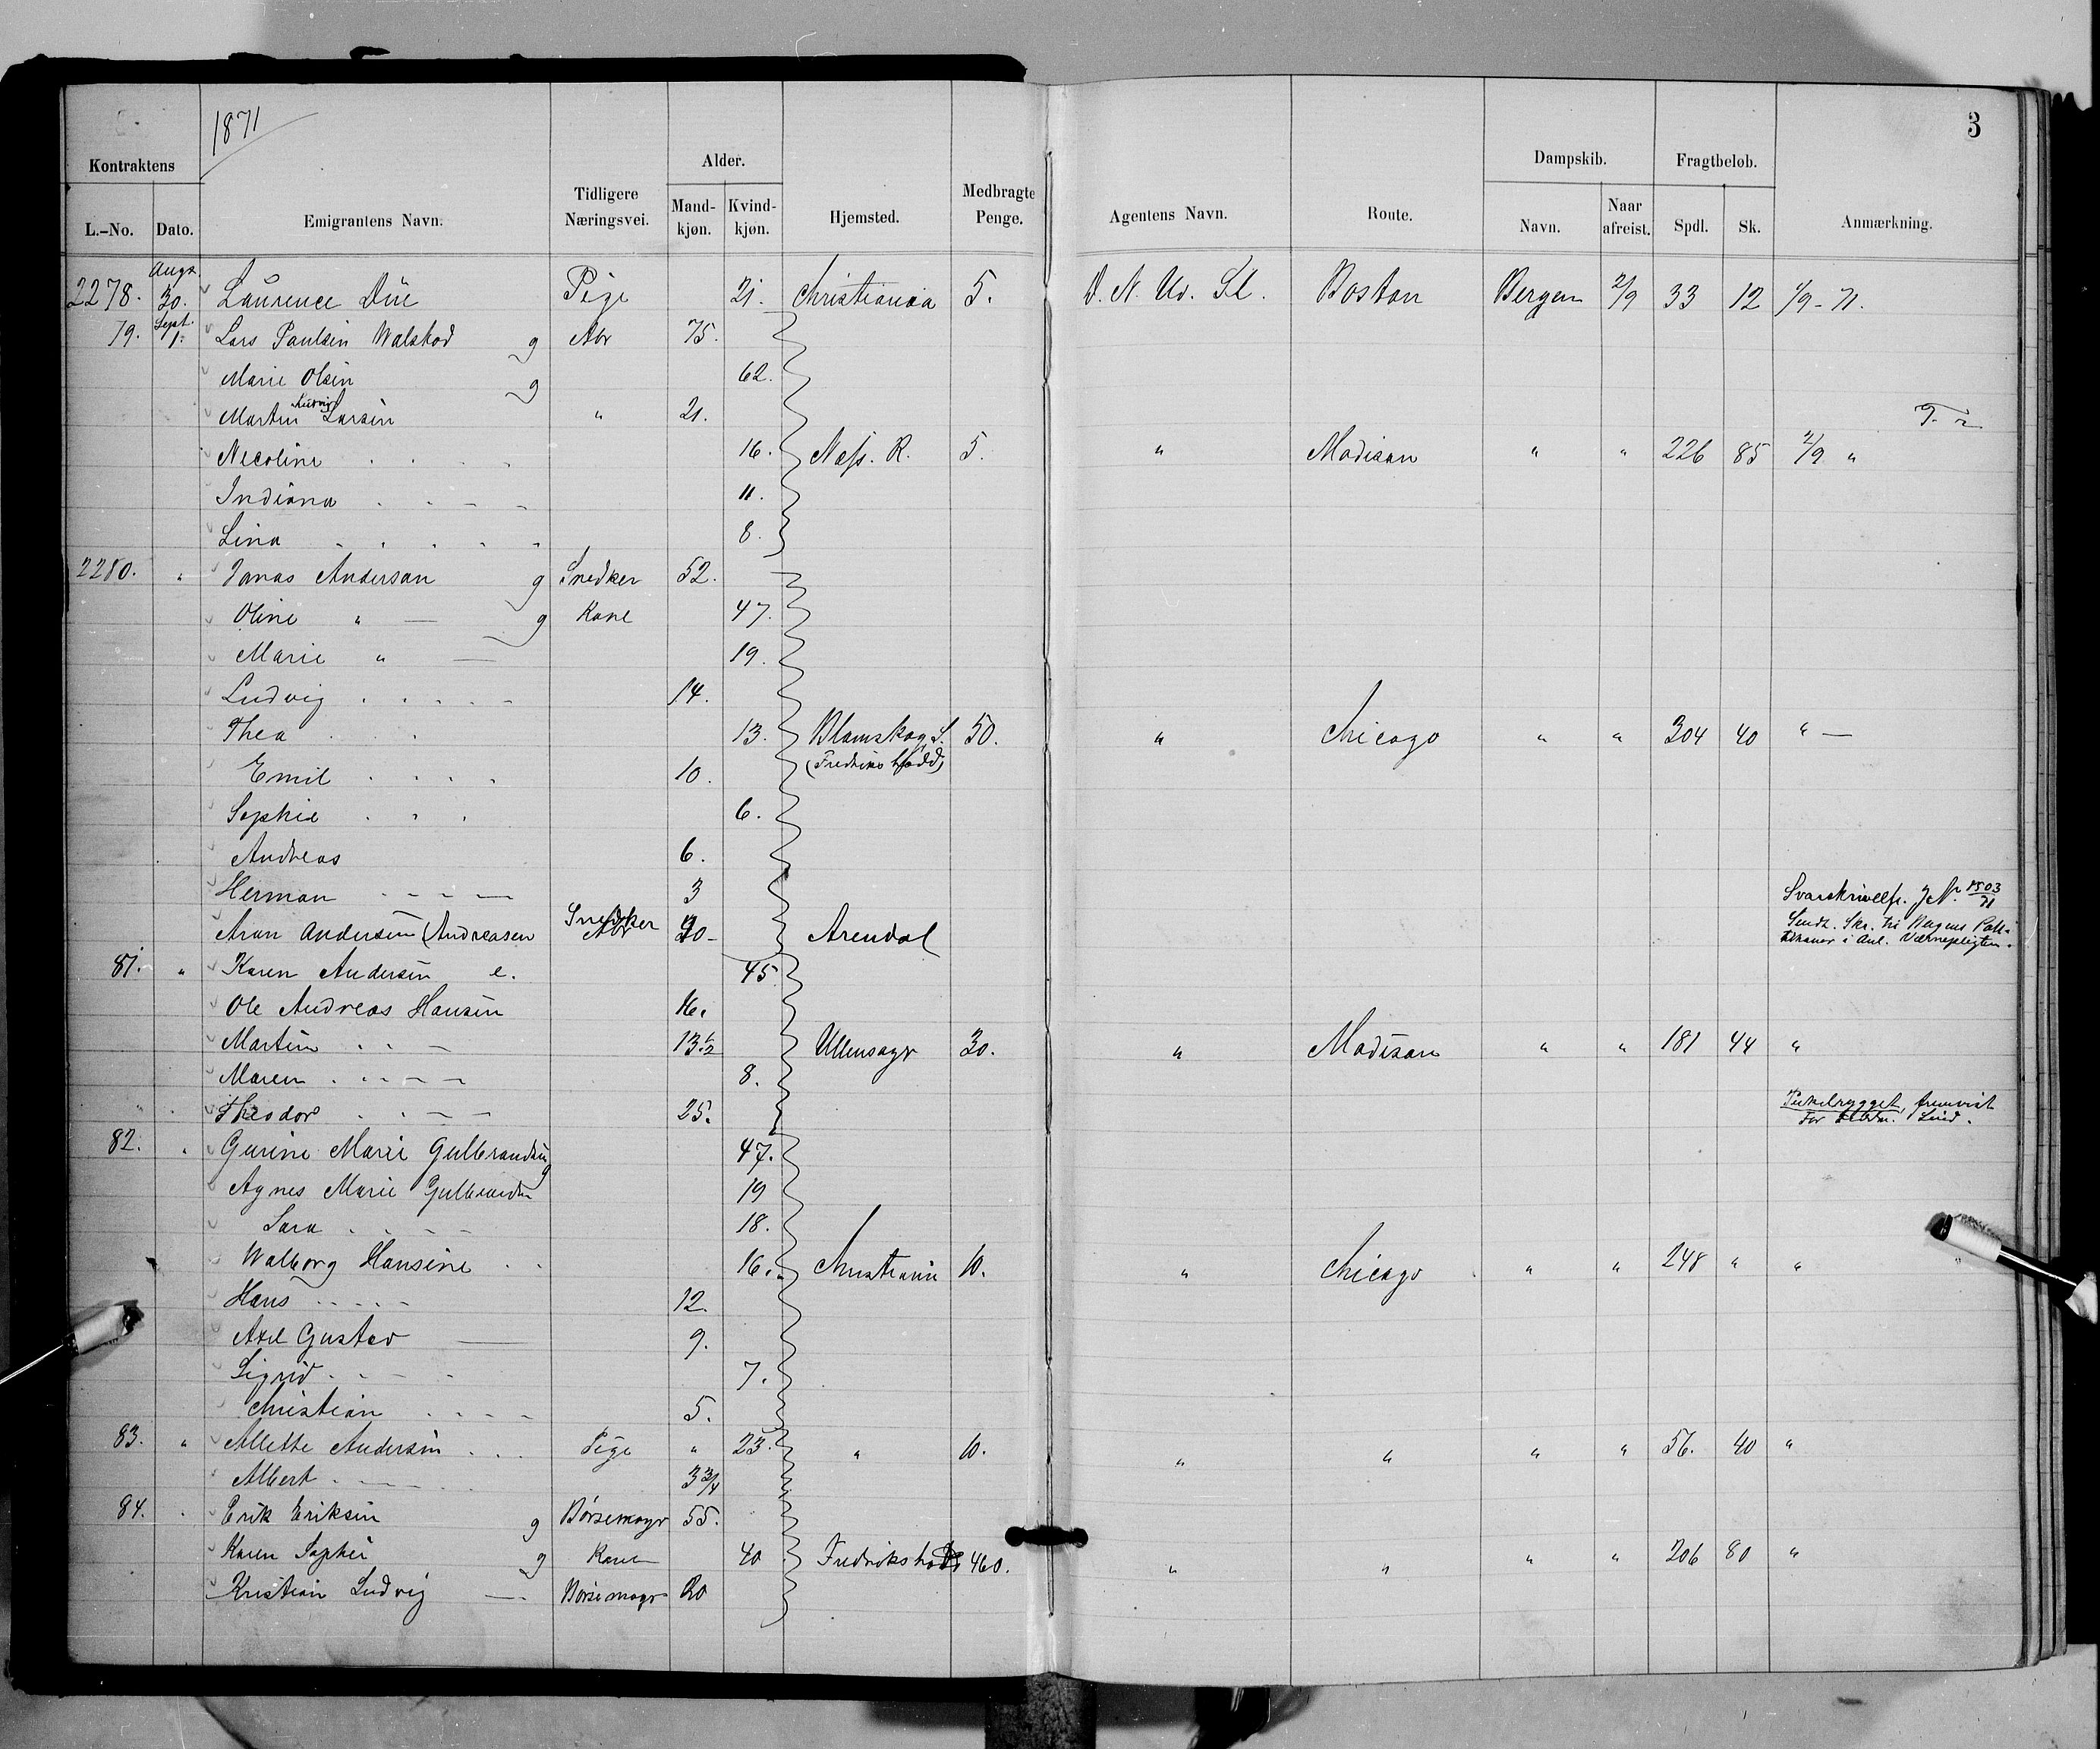 1871
3
Kontraktens
Alder.
Dampskib.
Fragtbeløb.
L.-No. Dato. Emigrantens Navn. Tidligere Næringsvei. Mand-kjøn. Kvind-kjøn. Hjemsted. Medbragte Penge. Agentens Navn. Route. Navn. Naar afreist. Spdl. Sk. Anmærkning.
Augs.
2278. 30. Laurence Due Pige 21. Christiania 5. D. N. Ud. Sl. Boston Bergen 2/9 33 12 1/9-71.
Sept.
79. 1. Lars Paulsen Walskod g Abr 75.
Marie Olsen g 62.
Martin Ludvig Larsen " 21.
Necoline . . . . 16. Næss. R. 5. " Madison " " 226 85 2/9 "
Indiana . . - - 11.
Lina . . . . . 8.
2280. " Jonas Anderson g Snedker 52.
Oline " — g Kone 47.
Marie " — 19.
Ludvig . . . . - 14.
Thea . . . 13. Blamskog S. 50. " Chicago " " 304 40 " —
(Fredrikshald)
Emil . . . . 10.
Sophie . . . 6.
Andreas 6.
Herman - - - - 3
Aron Andersen (Andreasen Snedker 30- Arendal
81. " Karen Andersen e. 45
Ole Andreas Hansen 16.
Martin . . - 13 1/2 Ullensager 30. " Madison " " 181 44 "
Maren . - - - - 8.
Theodor . . - - 25.
82. " Gurine Marie Gulbrandsen g 47.
Agnes Marie Gulbrandsen 19
Sara . . - - 18.
Walborg Hansine . . 16. Christiania 10. " Chicago " " 248 " "
Hans . . . . . 12.
Axel Gustav — 9.
Sigrid . . - . 7.
Christian . . . - 5.
83. " Allette Andersen . . . Pige " 23. " 10. " " " " 56. 40 "
Albert . . - - . 3 3/4
84. " Erik Eriksen g Børsemager 55.
Karen Sophie g Kone 40 Fredrikshald 460. " " " " 206 80 "
Kristian Ludvig — . Børsemager 20